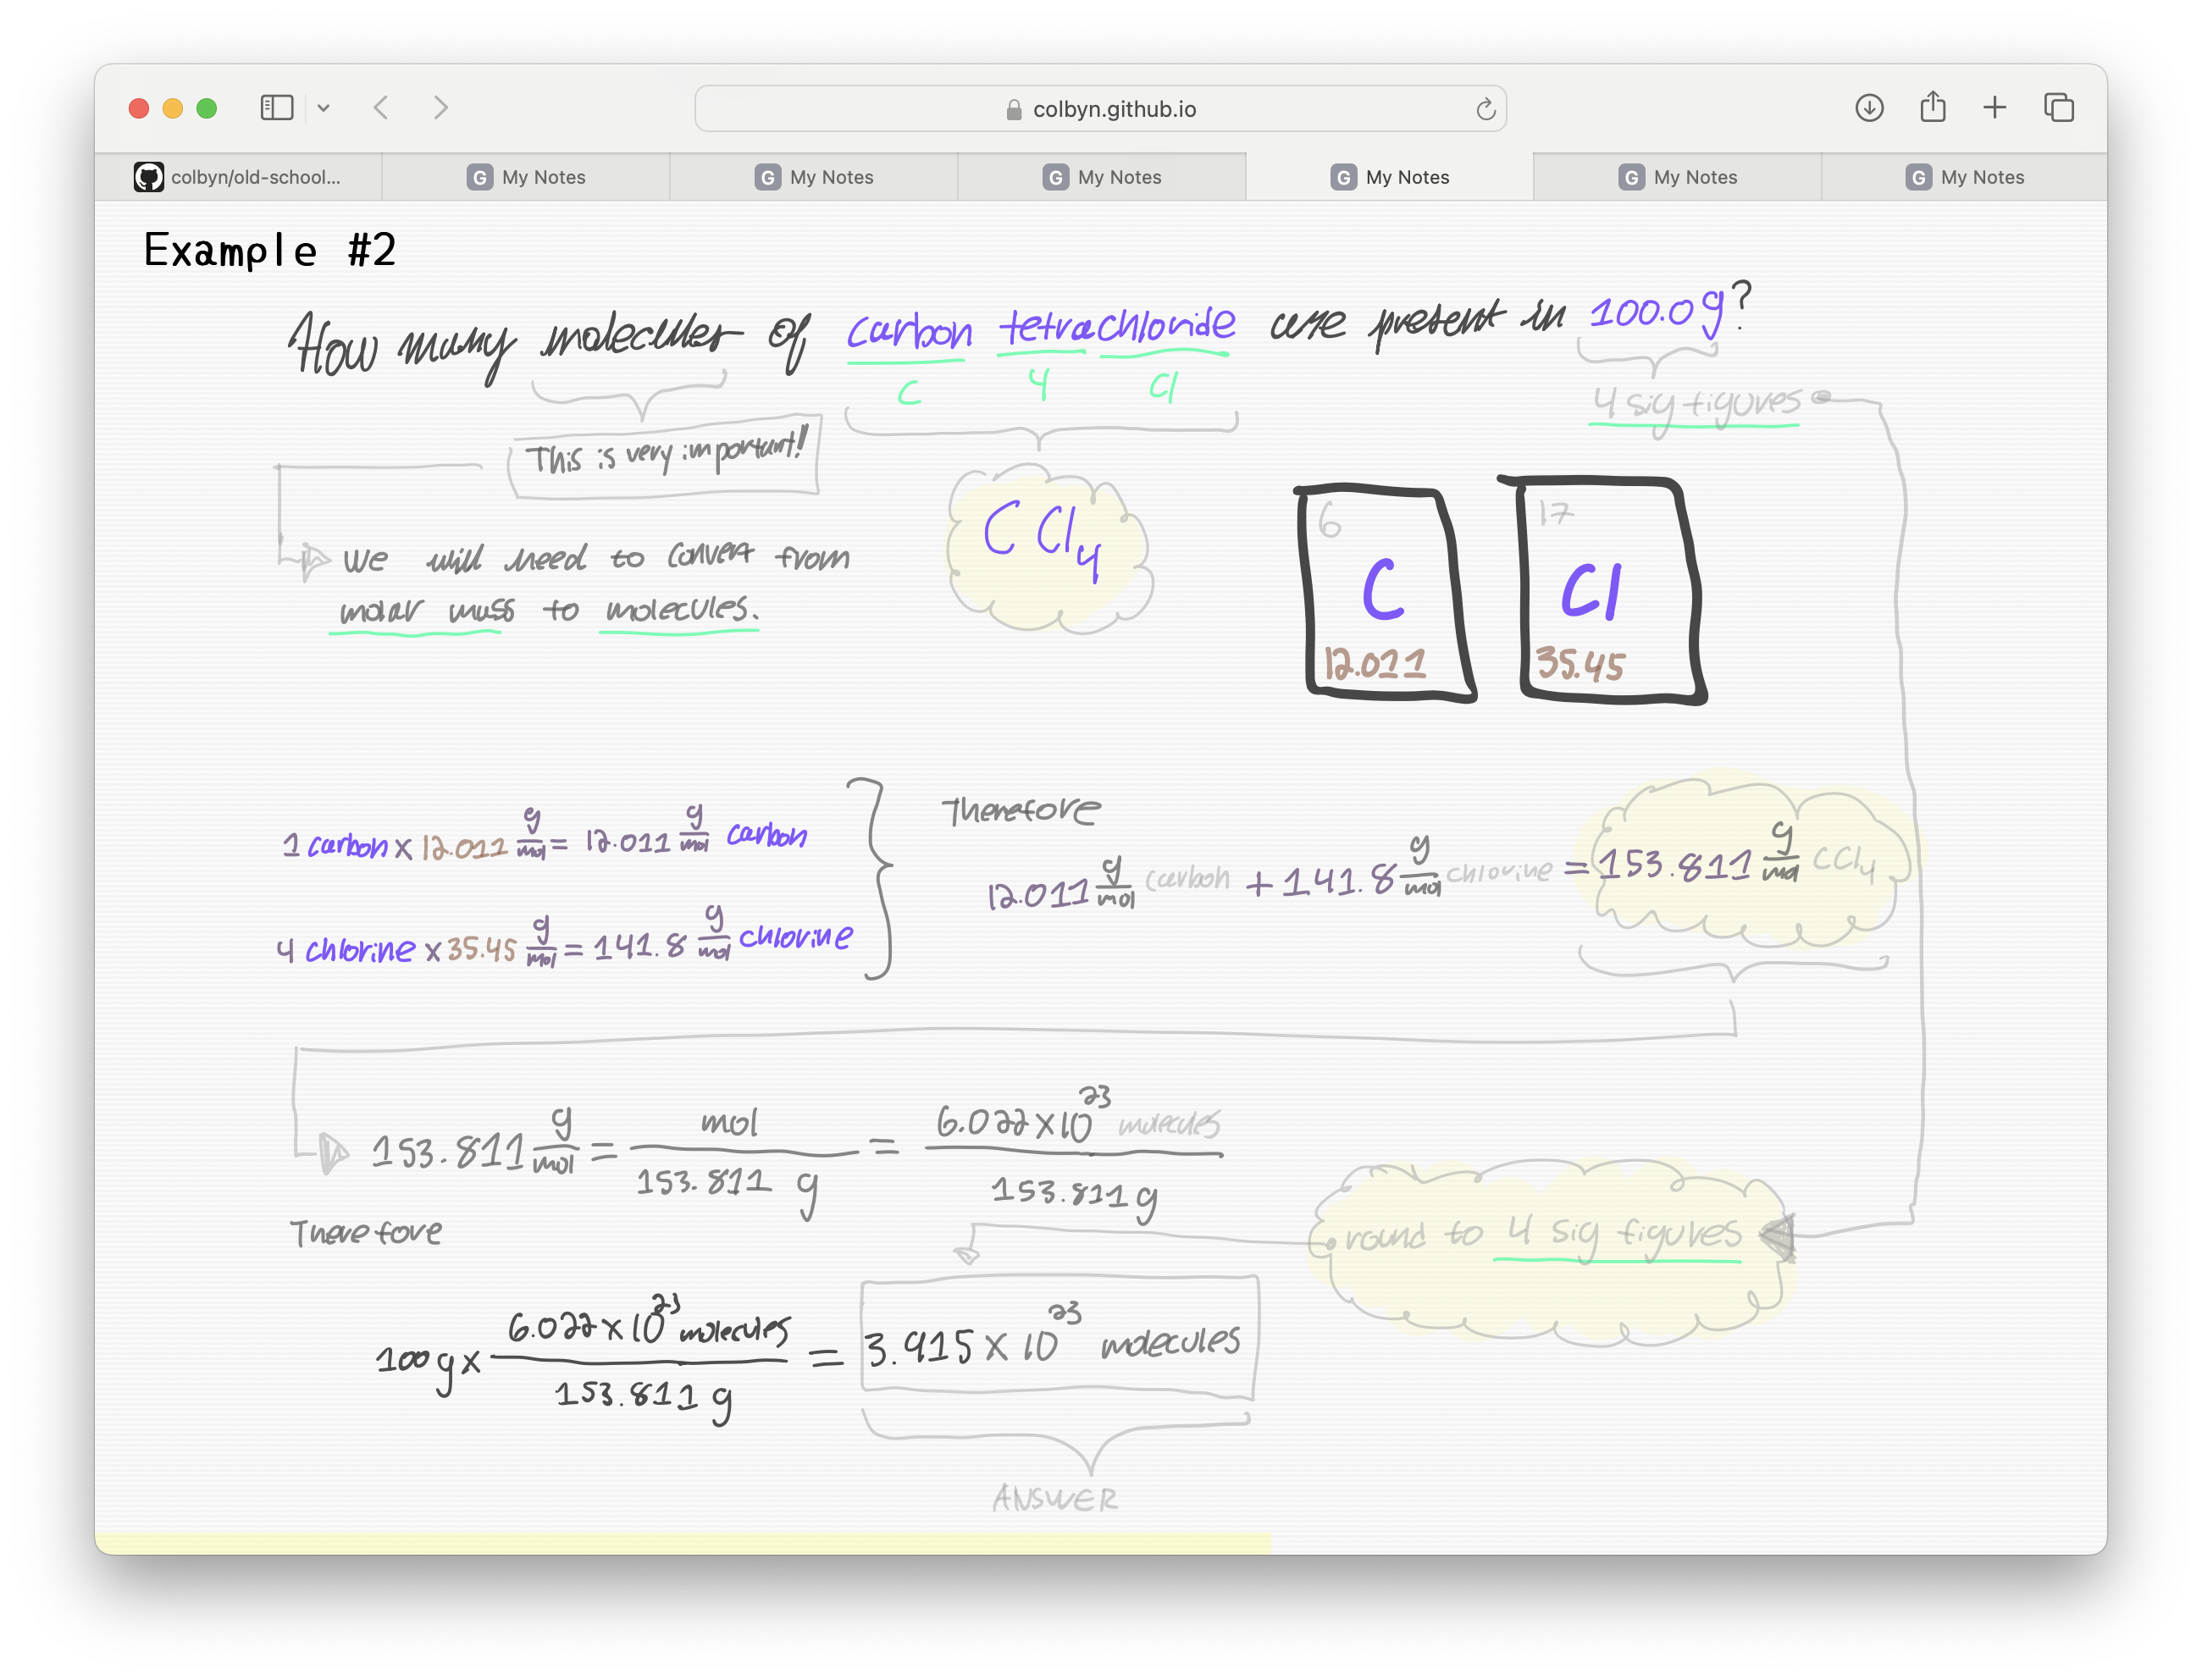 colbyn.github.io
colbyn/old-school...
G My Notes
G My Notes
G My Notes
G My Notes
G My Notes
G My Notes
Example #2
How many molecules of carbon tetrachloride are present in 100.0 g?
C 4 Cl
4 sig figures
This is very important!
We will need to convert from
molar mass to molecules.
C Cl₄
6
C
12.011
17
Cl
35.45
1 carbon x 12.011 g/mol = 12.011 g/mol carbon
4 chlorine x 35.45 g/mol = 141.8 g/mol chlorine
Therefore
12.011 g/mol carbon + 141.8 g/mol chlorine = 153.811 g/mol CCl₄
153.811 g/mol = mol / 153.811 g = 6.022 x 10²³ molecules / 153.811 g
round to 4 sig figures
Therefore
100 g x 6.022 x 10²³ molecules / 153.811 g = 3.915 x 10²³ molecules
ANSWER